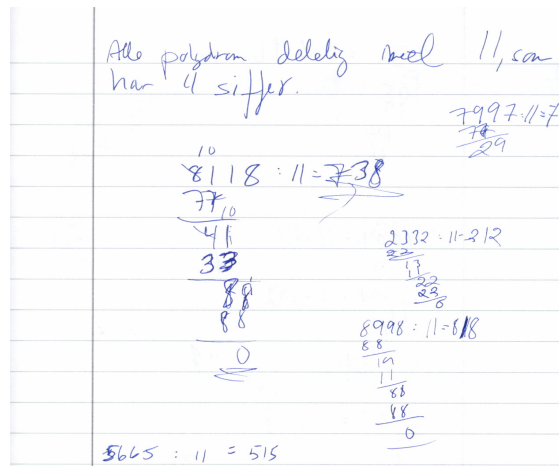 Alle polydrom delelig med 11, som
har 4 siffer.
7997:11=7
77
29
10
8118 : 11 = 738
77
10
41
33
88
88
0
2332 : 11 = 212
22
13
11
22
22
0
8998 : 11 = 818
88
19
11
88
88
0
5665 : 11 = 515